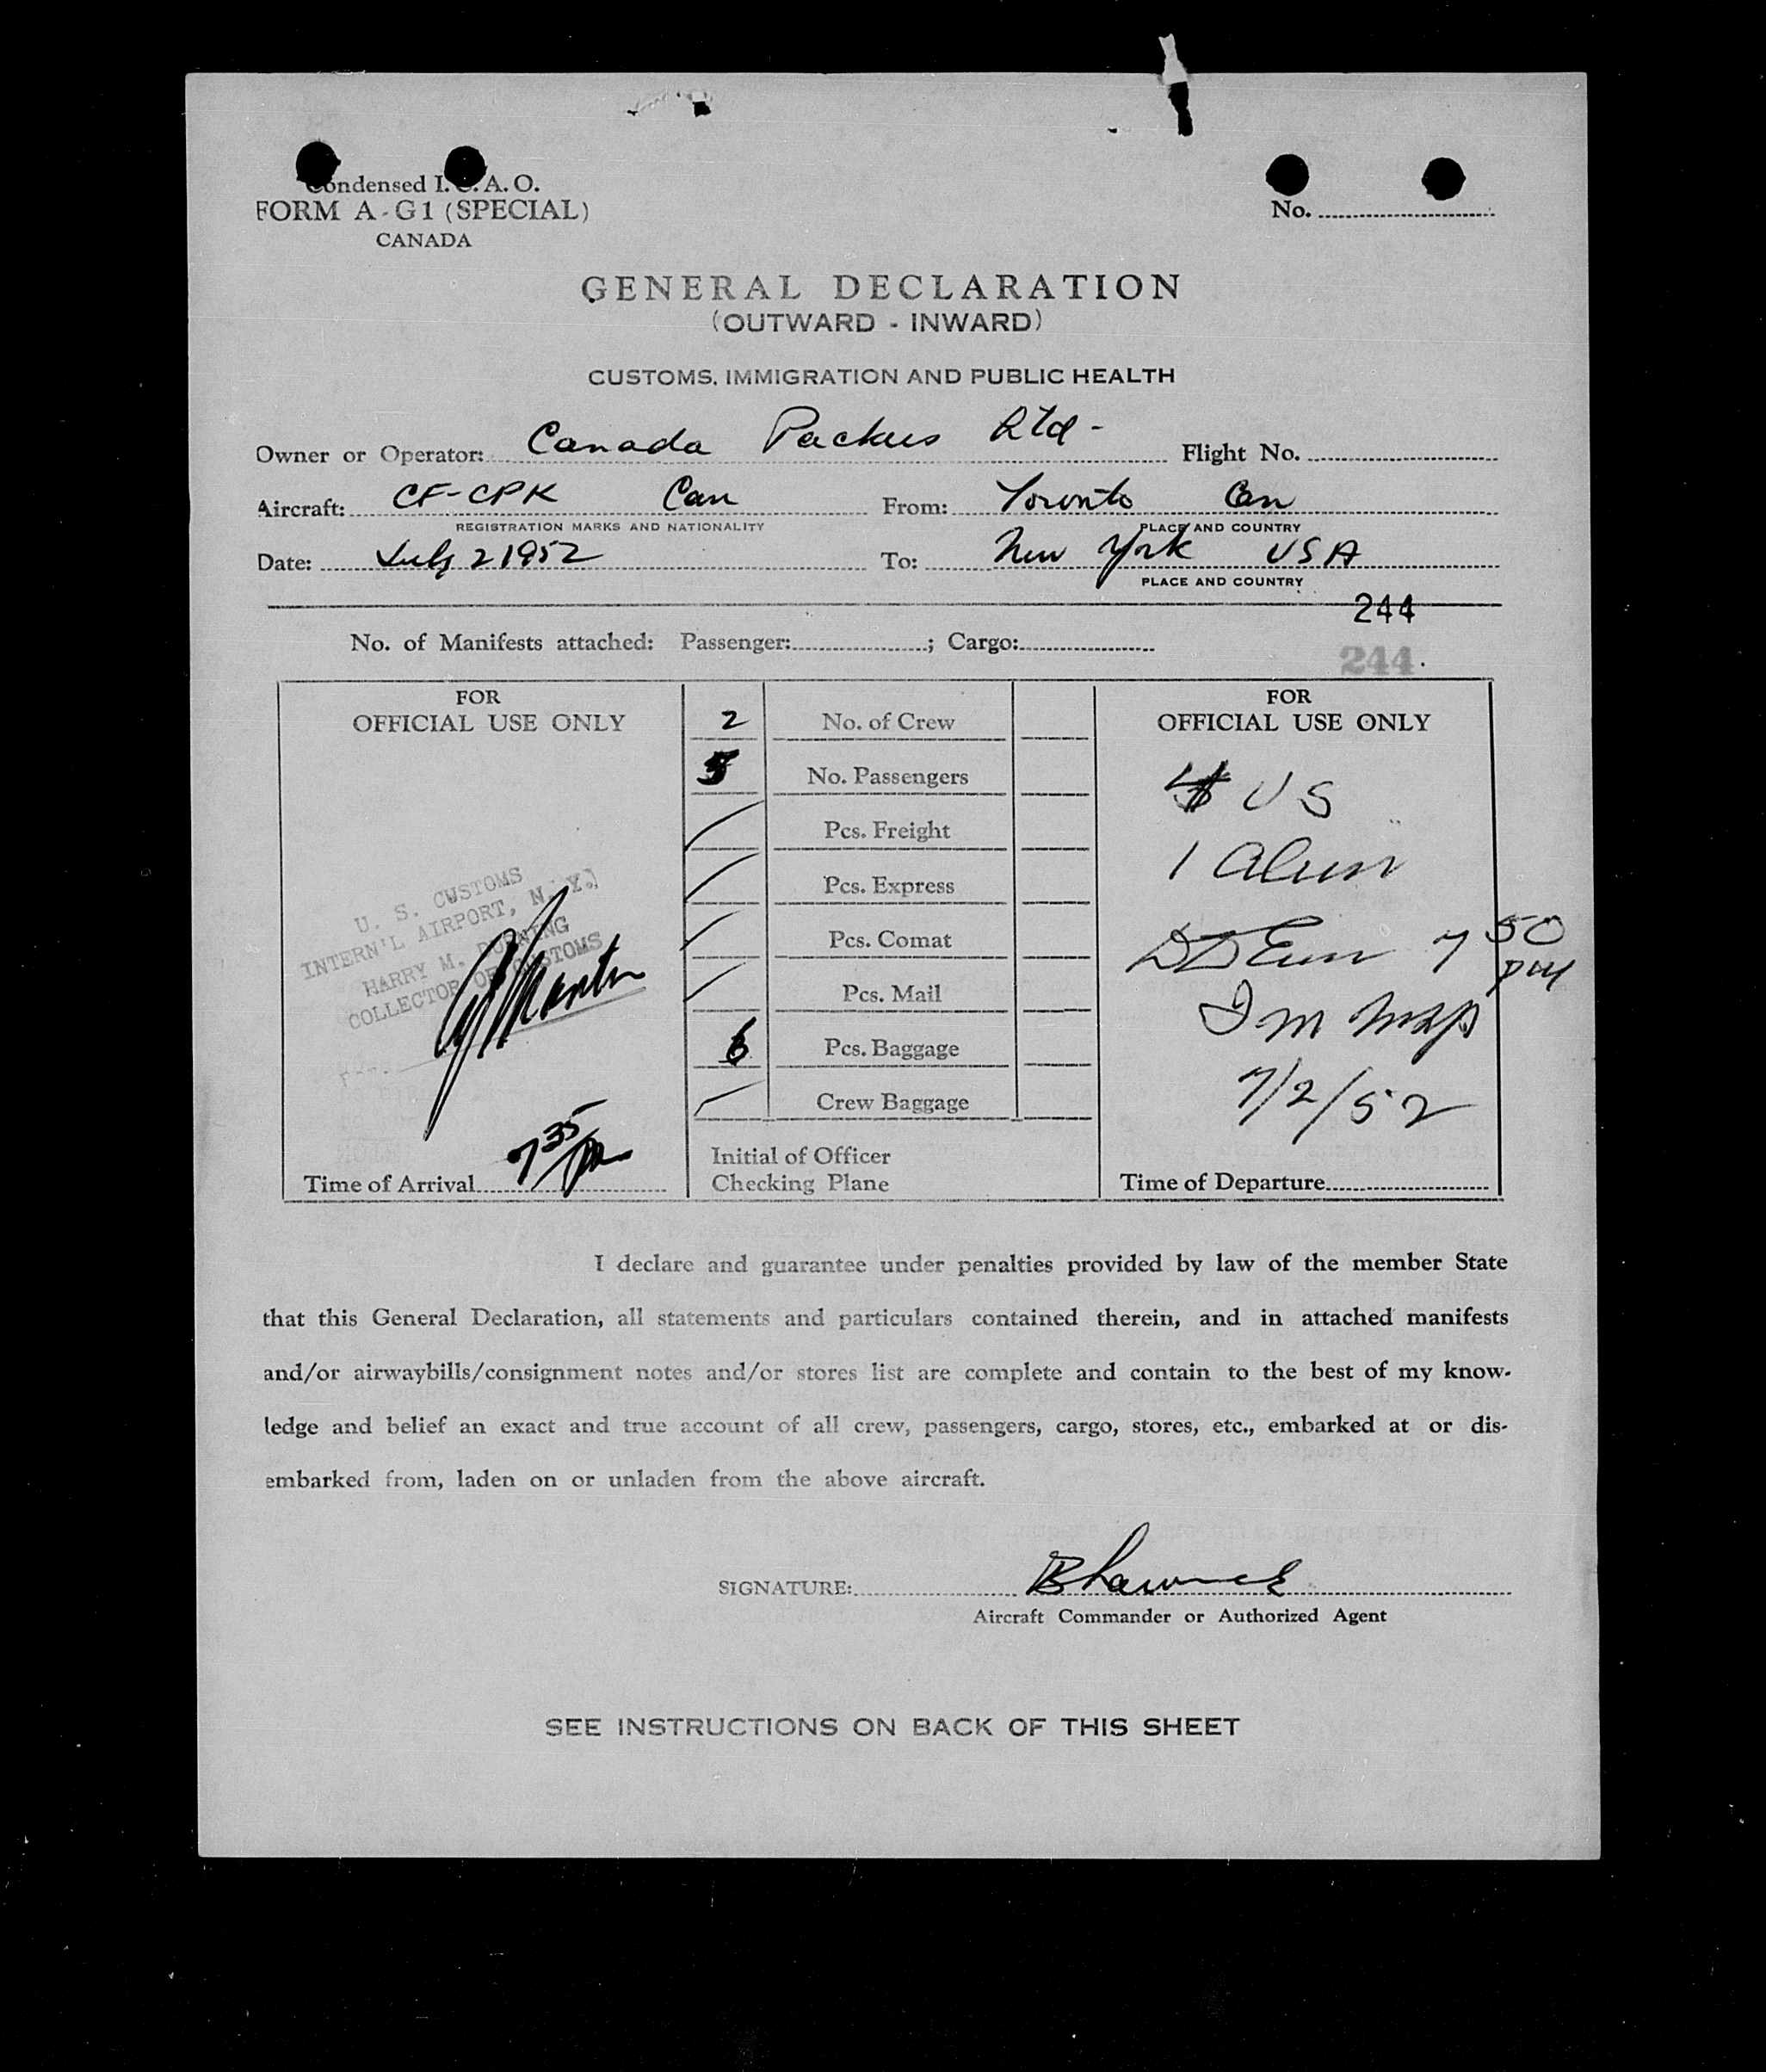 Condensed I.C.A.O.
FORM A-G1 (SPECIAL)
CANADA
No.
GENERAL DECLARATION
(OUTWARD - INWARD)
CUSTOMS, IMMIGRATION AND PUBLIC HEALTH
Owner or Operator: Canada Packers Ltd- Flight No.
Aircraft: CF-CPK Can From: Toronto Can
REGISTRATION MARKS AND NATIONALITY PLACE AND COUNTRY
Date: July 2 1952 To: New York USA
PLACE AND COUNTRY
244
No. of Manifests attached: Passenger: ; Cargo:
244
FOR OFFICIAL USE ONLY
U. S. CUSTOMS
INTERN'L AIRPORT, N. Y.
HARRY M. DURNING
COLLECTOR OF CUSTOMS
Time of Arrival 7 35
2 No. of Crew
5 No. Passengers
Pcs. Freight
Pcs. Express
Pcs. Comat
Pcs. Mail
6 Pcs. Baggage
Crew Baggage
Initial of Officer
Checking Plane
FOR OFFICIAL USE ONLY
4 US
1 alien
7 50 PM
7/2/52
Time of Departure
I declare and guarantee under penalties provided by law of the member State
that this General Declaration, all statements and particulars contained therein, and in attached manifests
and/or airwaybills/consignment notes and/or stores list are complete and contain to the best of my know-
ledge and belief an exact and true account of all crew, passengers, cargo, stores, etc., embarked at or dis-
embarked from, laden on or unladen from the above aircraft.
SIGNATURE:
Aircraft Commander or Authorized Agent
SEE INSTRUCTIONS ON BACK OF THIS SHEET